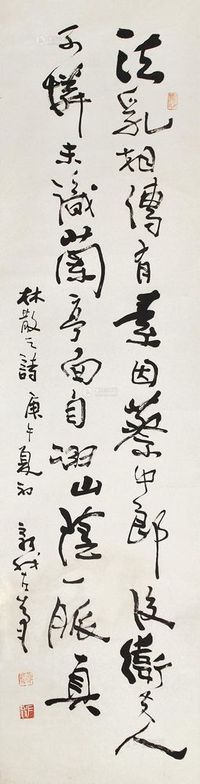 法乳相传有素因蔡中郎後衛夫人
可憐未識蘭亭面自溯山陰一脈真
林散之詩庚午夏初